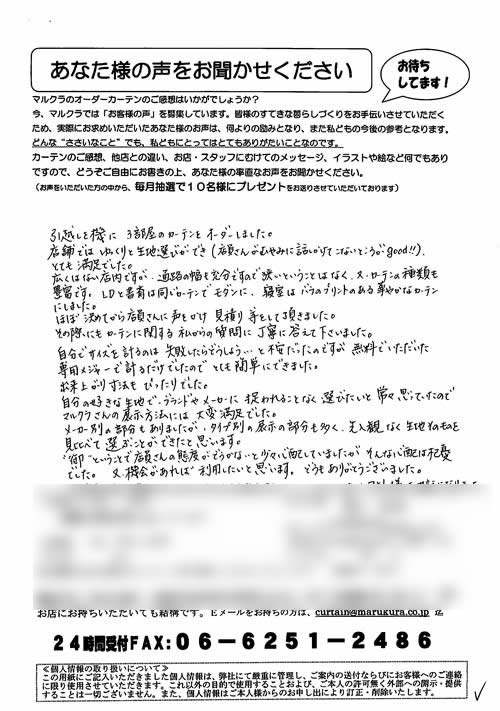 あなた様の声をお聞かせください
お待ち
してます!
マルクラのオーダーカーテンのご感想はいかがでしょうか?
今、マルクラでは「お客様の声」を募集しています。皆様のすてきな暮らしづくりをお手伝いさせていただく
ため、実際にお求めいただいたあなた様のお声は、何よりの励みとなり、また私どもの今後の参考となります。
どんな“ささいなこと”でも、私どもにとってはとてもありがたいことなのです。
カーテンのご感想、他店との違い、お店・スタッフにむけてのメッセージ、イラストや絵など何でもあり
ですので、どうぞご自由にお書きの上、あなた様の率直なお声をお聞かせください。
(お声をいただいた方の中から、毎月抽選で10名様にプレゼントをお送りさせていただいております)
引越しを機に 3部屋のカーテンをオーダーしました。
店舗では ゆっくりと生地選びができ(店員さんがむやみに話しかけてこないところがgood!!)、
とても満足でした。
広くはない店内ですが、通路の幅も充分ですので狭いということはなく、又、カーテンの種類も
豊富です。LDと書斎は同じカーテンでモダンに、寝室はバラのプリントのある華やかなカーテン
にしました。
ほぼ決めてから店員さんに声をかけ 見積り等をして頂きました。
その際にもカーテンに関する私からの質問に丁寧に答えて下さいました。
自分でサイズを計るのは 失敗したらどうしよう…と不安だったのですが 無料でいただいた
専用メジャーで計るだけでしたので とても簡単にできました。
出来上がり寸法もぴったりでした。
自分の好きな生地で、ブランドやメーカーに捉われることなく選びたいと常々思っていたので
マルクラさんの展示方法には大変満足でした。
メーカー別の部分もありましたが、タイプ別の展示の部分も多く、先入観なく生地そのものを
見比べて選ぶことができたと思います。
“卸”ということで店員さんの態度がどうかな、と少々心配していましたが そんな心配は杞憂
でした。又、機会があれば利用したいと思います。どうもありがとうございました。
お店にお持ちいただいても結構です。Eメールをお持ちの方は、curtain@marukura.co.jp
24時間受付FAX:06-6251-2486
≪個人情報の取り扱いについて≫
この用紙にご記入いただきました個人情報は、弊社にて厳重に管理し、ご案内の送付ならびにお客様へのご連絡
に限り使用させていただきます。これ以外の目的で使用することおよび、ご本人の許可無く外部への開示・提供
することは一切ございません。また、個人情報はご本人様からのお申し出により訂正・削除いたします。